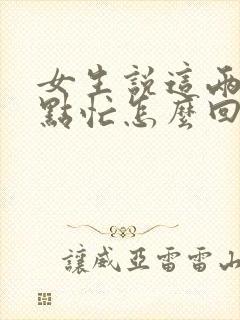 女生説這兩
點忙怎麼回
讓威亞雷雷山